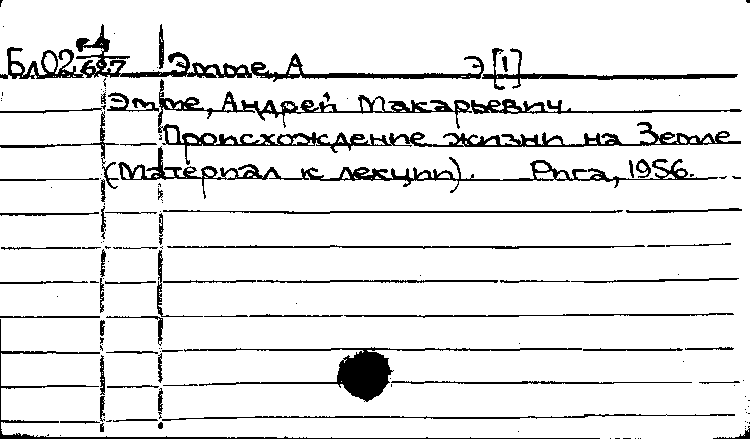 Бл02 Г-4/627 Этте, А Э[1]
Этте, Андрей Макарьевич.
Происхождение жизни на Земле
(Материал к лекции). Рига, 1956.